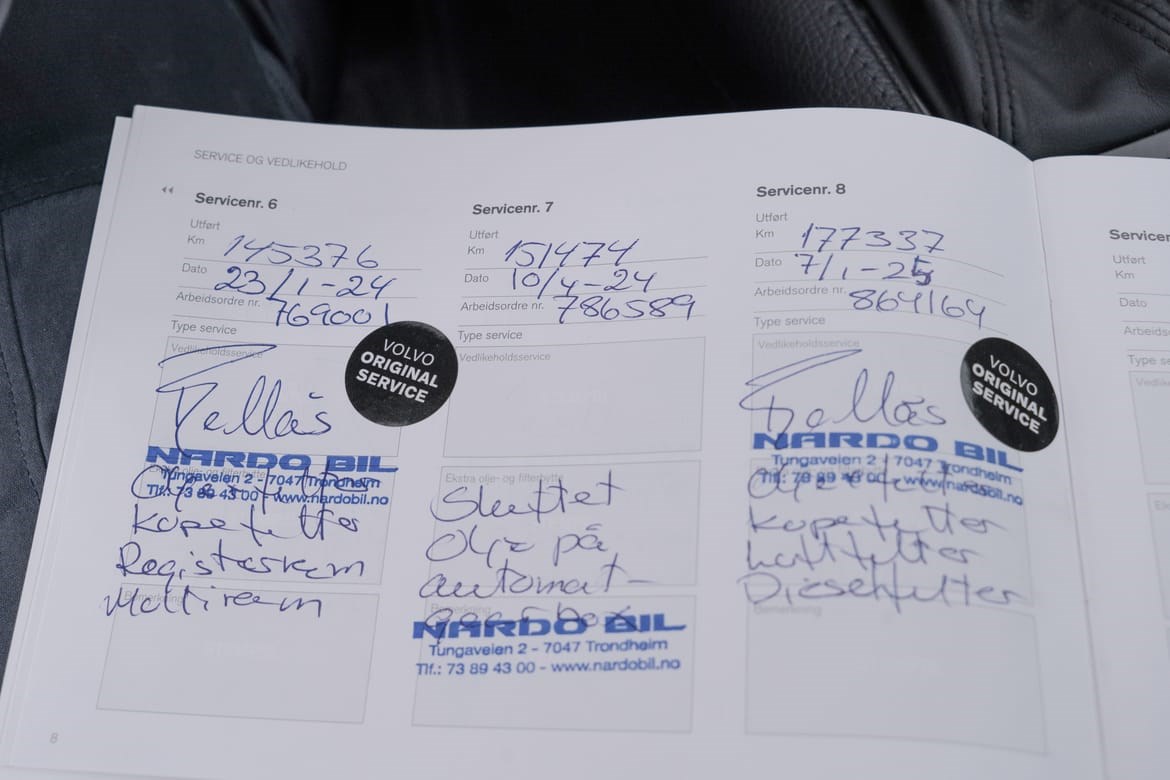 SERVICE OG VEDLIKEHOLD
Servicenr. 6
Utført
Km 145376
Dato 23/1-24
Arbeidsordre nr. 769001
Type service
Vedlikeholdsservice
VOLVO
ORIGINAL
SERVICE
NARDO BIL
Tungaveien 2 - 7047 Trondheim
Tlf.: 73 89 43 00 - www.nardobil.no
Kupefilter
Registerrem
Multireem
Bemerkning
Servicenr. 7
Utført
Km 151474
Dato 10/4-24
Arbeidsordre nr. 786589
Type service
Vedlikeholdsservice
Ekstra olje- og filterbytte
Skiftet
Olje på
automat-
gearbox
Bemerkning
NARDO BIL
Tungaveien 2 - 7047 Trondheim
Tlf.: 73 89 43 00 - www.nardobil.no
Servicenr. 8
Utført
Km 177337
Dato 7/1-25
Arbeidsordre nr. 864164
Type service
Vedlikeholdsservice
VOLVO
ORIGINAL
SERVICE
NARDO BIL
Tungaveien 2 - 7047 Trondheim
Tlf.: 73 89 43 00 - www.nardobil.no
Kupefilter
Luftfilter
Dieselfilter
Bemerkning
Utført
Km
Dato
8